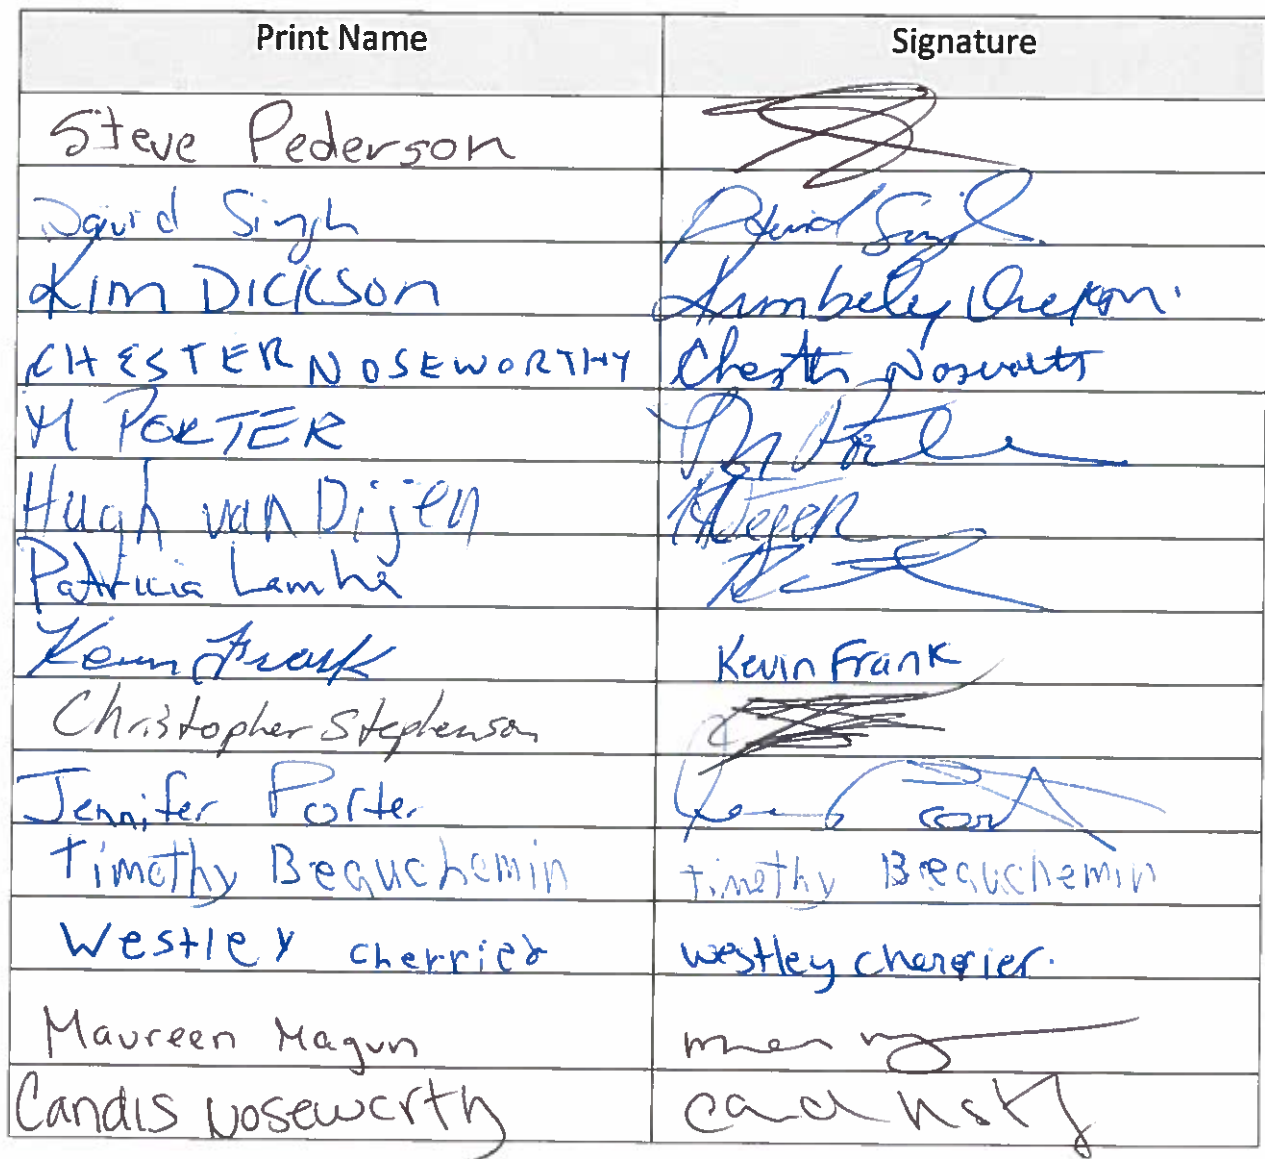 Print Name Signature
Steve Pederson
David Singh David Singh
Kim DICKSON Kimberly
CHESTER NOSEWORTHY Chester
M PORTER M Porter
Hugh van Dijen
Patricia
Kevin Frank Kevin Frank
Christopher Stephenson
Jennifer Porter
Timothy Beauchemin timothy Beauchemin
Westley cherrier westley cherrier.
Maureen Magun
Candis Noseworthy